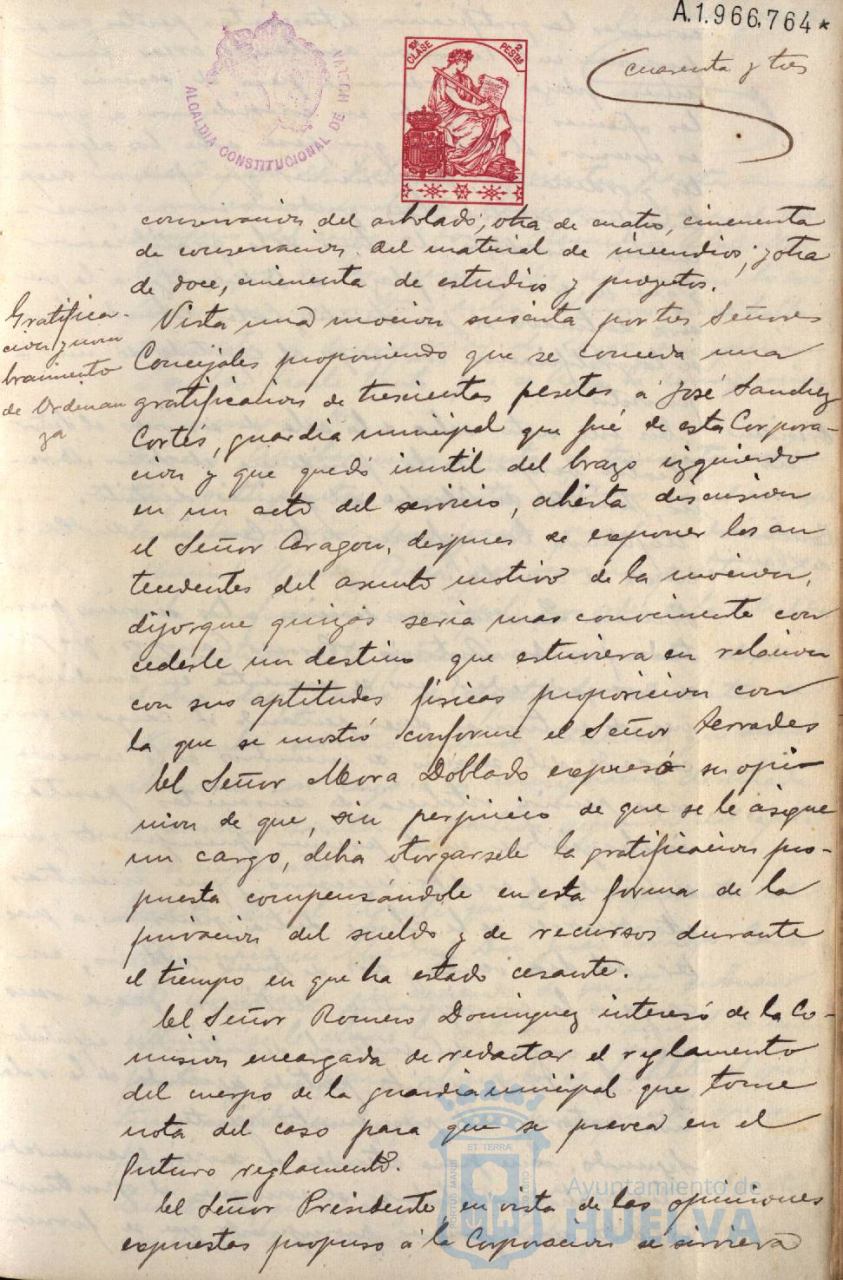 A.1.966.764*
10ª CLASE
2 PESTAS
ALCALDIA CONSTITUCIONAL DE HUELVA
cuarenta y tres
conservacion del arbolado; otra de cuatro, cincuenta
de conservacion del material de incendios; y otra
de doce, cincuenta de estudios y proyectos.
Gratifica-
cion y nom
bramiento
de Ordenan
za
Vista una mocion suscrita por tres Señores
Concejales proponiendo que se conceda una
gratificacion de trescientas pesetas á José Sanchez
Cortés, guardia municipal que fué de esta Corpora-
cion y que quedó inutil del brazo izquierdo
en un acto del servicio, abierta discusion
el Señor Aragon, despues de exponer los an
tecedentes del asunto motivo de la mocion,
dijo que quizás seria mas conveniente con
cederle un destino que estuviera en relacion
con sus aptitudes físicas proposicion con
la que se mostró conforme el Señor Terrades
El Señor Mora Doblado expresó su opi-
nion de que, sin perjuicio de que se le asigne
un cargo, debia otorgarsele la gratificacion pro-
puesta compensándole en esta forma de la
privacion del sueldo y de recursos durante
el tiempo en que ha estado cesante.
El Señor Romero Dominguez interesó de la Co-
mision encargada de redactar el reglamento
del cuerpo de la guardia municipal que tome
nota del caso para que se provea en el
futuro reglamento.
El Señor Presidente en vista de las opiniones
expuestas propuso á la Corporacion se sirviera
PORTUS MARIS ET TERRAE CUSTODIA
Ayuntamiento de
HUELVA